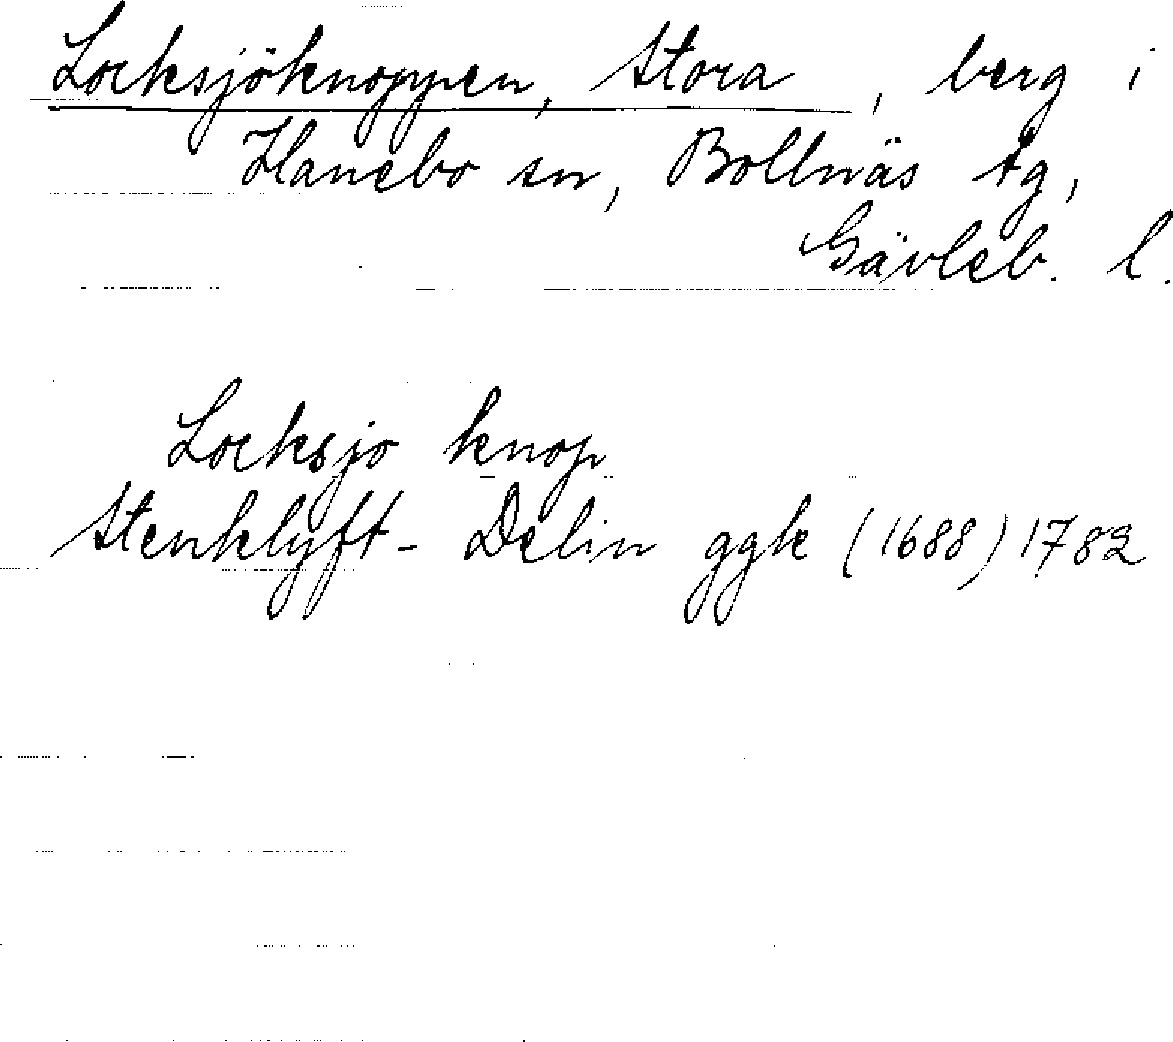 Locksjöknoppen, Stora, berg i
Hanebo sn, Bollnäs tg,
Gävleb. l.
Locksjo knop
Stenklyft- Delin ggk (1688) 1782